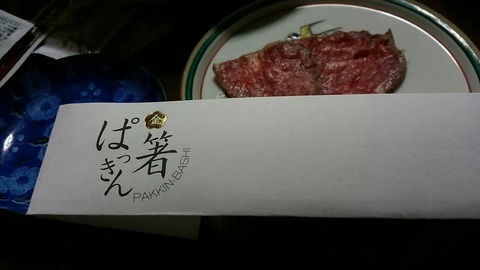 ぱっきん
金
箸
PAKKIN-BASHI